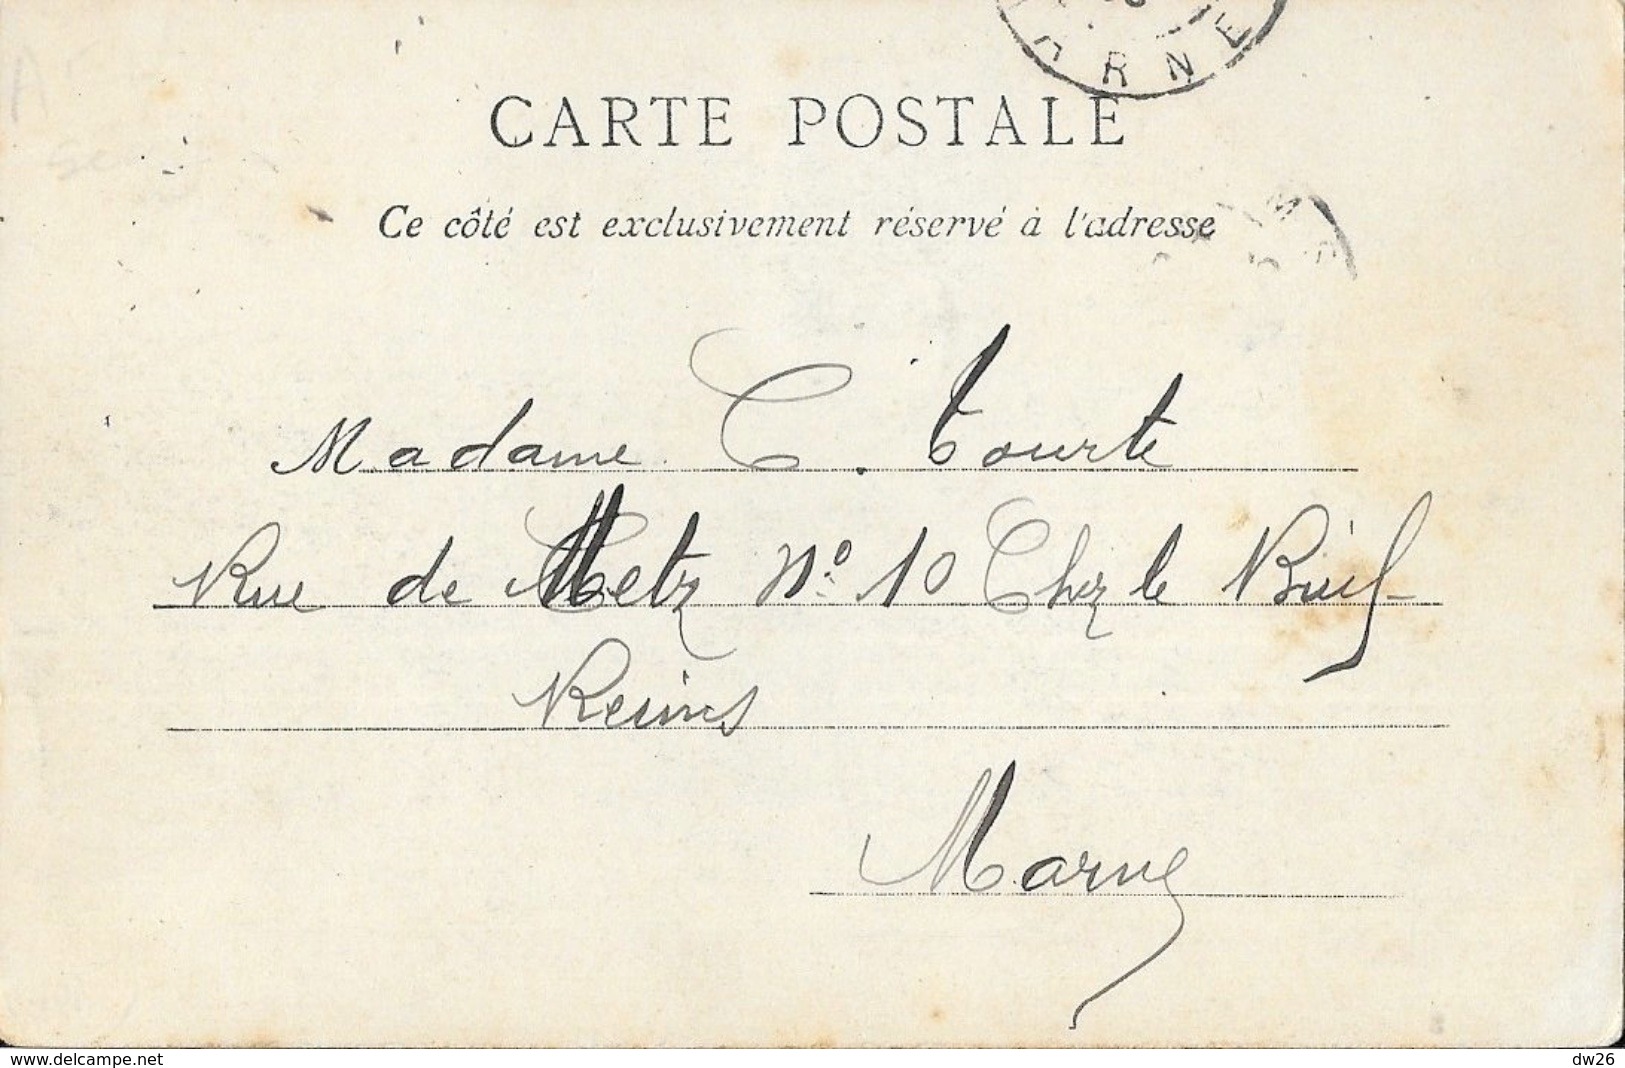 ARNE
CARTE POSTALE
Ce côté est exclusivement réservé à l'adresse
Madame C. Tourte
Rue de Metz N° 10 Chez le
Reims
Marne
www.delcampe.net
dw26